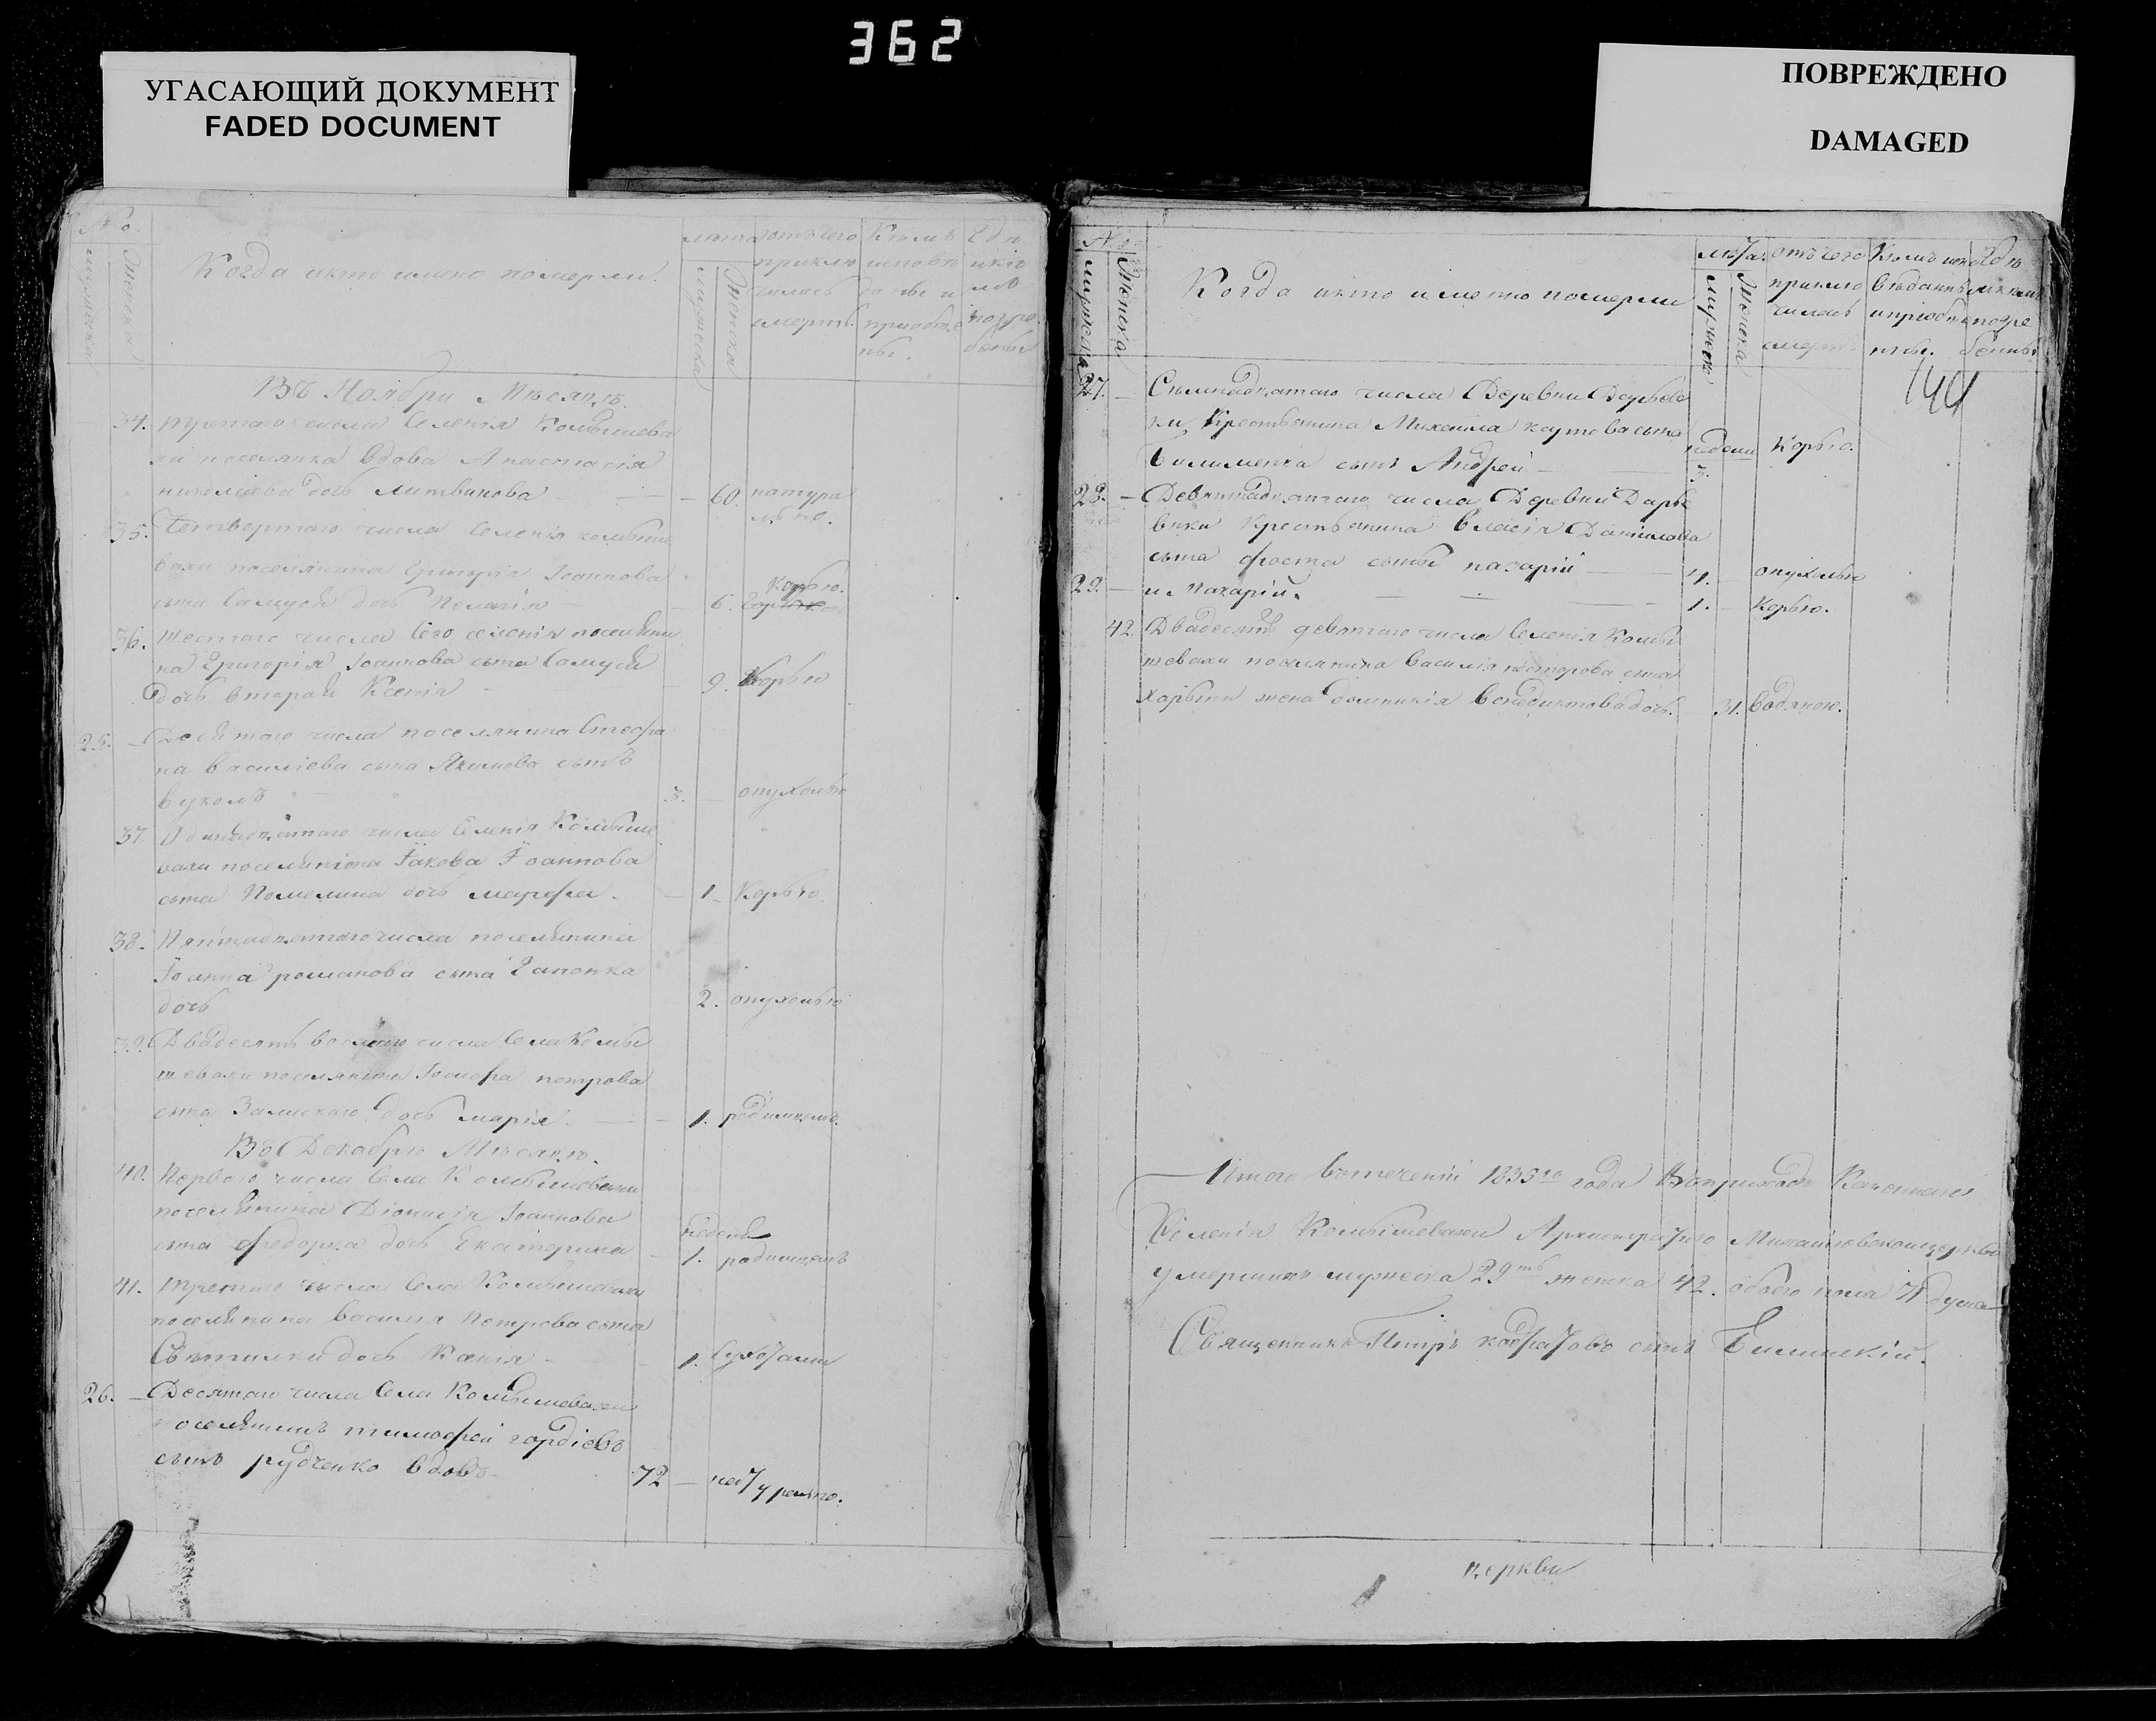 362
УГАСАЮЩИЙ ДОКУМЕНТ
FADED DOCUMENT
ПОВРЕЖДЕНО
DAMAGED
No.
мужеска
Женска
Когда икто имено померли.
мужеска
Женска
лѣта
отъ чего приклю чилась смерть.
Кѣмъ исповѣ даны и приобще ны.
Гдѣ икѣмъ погре бены
Въ Ноябри Мѣсяцѣ.
34. третаго числа Селенія Комышева
хи поселянка вдова Анастасія
николаева дочь литвинова — 60. натура
льно.
35. Четвертаго числа Селенія комыше
вахи поселянина Григорія Іоаннова
Корью.
сына Самусѣ дочь Пелагія — 6.
36. шестаго числа сего селенія поселяни
на Григорія Іоаннова сына Самусѣ
дочь вторая Ксенія — 9. Корью
25. — Десятаго числа поселянина Стефа
на василіева сына Якимова сынъ
вуколъ 3. — опухолью
37. Одинадцатаго числа Селенія Комыше
вахи поселянина Іакова Іоаннова
сына Помелина дочь марфа. — 1. Корью
38. Пятнадцатаго числа поселянина
Іоанна романова сына Гапонка
дочь 2. опухолью
39. Двадесять восмаго числа Села Комы
шевахи поселянина Іосифа петрова
сына Залискаго дочь марія. — 1. родимцемъ.
Въ Декабрѣ Мѣсяцѣ.
40. Перваго числа Села Комышевахи
поселянина Діонисія Іоаннова
недели
сына федорка дочь Екатерина — 1. родимцемъ
41. третаго числа Села Комышевахи
поселянина василія Петрова сына
Свѣтилки дочь Ксенія — 1.
26. — Десятаго числа Села Комышевахи
поселянинъ тимофей гордіевъ
сынъ рудченко вдовъ 72 — натурално.
No.
мужеска
Женска
Когда икто иметно померли
лѣта.
мужеска
Женска
отъ чего приклю чилась смерть
Кѣмъ испо вѣданы и пріобще ны.
Гдѣ икѣмъ погре бенны
144
27. — Семнадцатаго числа Деревни Дарьев
ки Крестьянина Михаила
недели
Билименка сынъ Андрей — 3. Корью.
28. — Девятнадцатаго числа Деревни Дарье
вки Крестьянина власія Данилова
сына фоста сыны назарій — 4. — опухолью
29. — и Макарій. — 1. — Корью.
42. Двадесять девятаго числа Селенія Комы
шевахи поселянина василія несторова сына
Харыти жена домникія венедиктова дочь. — 31. водяною.
— Итого втеченіи 1835го года Вприходѣ Казеннаго
Селенія Комышевахи Архистратиго Михайловской церкви
умершихъ мужеска 29ть женска 42. обоего пола 71 душа
Священникъ Петръ кодратовъ сынъ Билинскій.
церкви